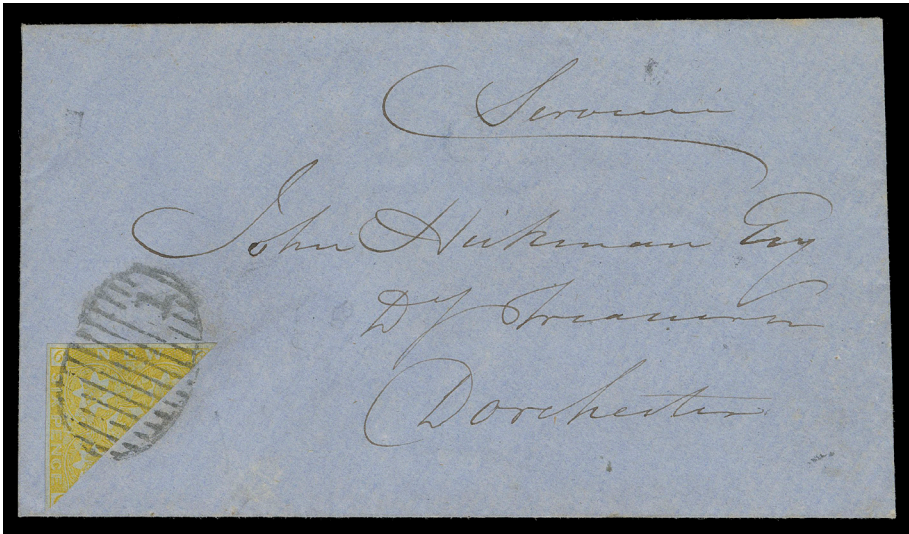 Service
John Hickman Esq
Dy Treasurer
Dorchester
1
PENCE